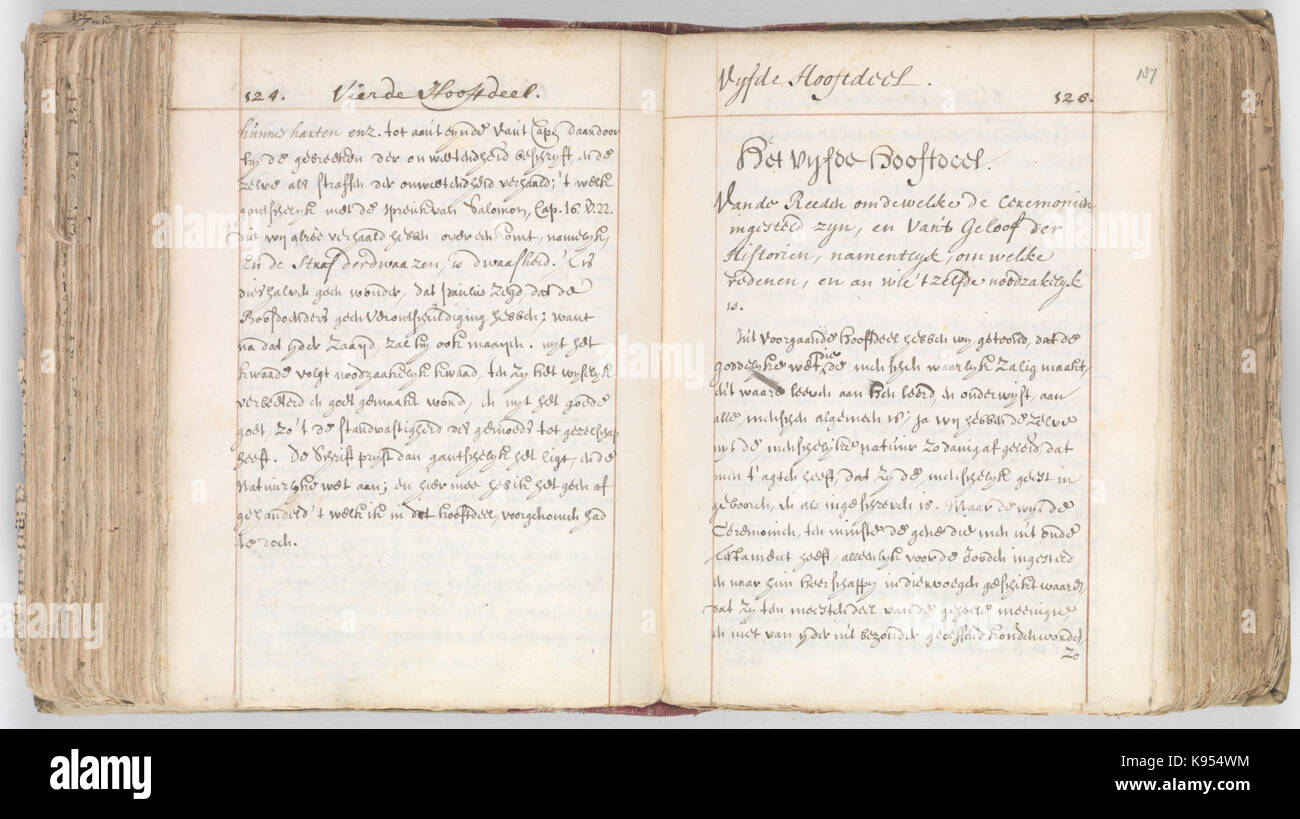 124. Vierde Hooftdeel.
hunne harten enz. tot aan't eynde van't Cap. daar door
hy de gebreeken der onweetendheid beschryft, en de
zelve als straffen der onweetendheid verhaald; 't welk
gantschelyk met de spreuk van Salomon, Cap. 16. V. 22.
die wy alree verhaald hebben over een komt, namelyk,
En de Straf der dwaazen, is dwaasheid. 't Is
dierhalven geen wonder, dat Paulus zegd, dat de
Boosdoenders geen verontschuldiging hebben; want
na dat yder zaayd, zal hy ook maayen. uyt het
kwaade volgt noodzaakelyk kwaad, ten zy het wyselyk
verbeeterd en goet gemaakt word, en uyt het goede
goet, zo 't de standvastigheid des gemoeds tot gezelschap
heeft. De Schrift pryst dan gantschelyk het ligt, en de
Natuurlyke wet aan; en hier mee heb ik het geen af
gehandeld 't welk ik in dit hooftdeel, voorgenomen had
te doen.
Vyfde Hooftdeel. 125.
187
Het Vyfde Hooftdeel.
Van de Reeden om dewelke de Ceremonien
ingesteld zyn, en van't Geloof der
Historien, namentlyk, om welke
redenen, en an wie 't zelfde noodzakelyk
is.
In't voorgaande hooftdeel hebben wy getoond, dat de
goddelyke wet, die de menschen waarlyk zalig maakt,
en't waare leeven aan hen leerd, en onderwyst, aan
alle menschen algemeen is; ja wy hebben de zelve
uyt de menschelyke natuur zodanig afgeleid, dat
men t'agten heeft, dat zy de menschelyk geest in
gebooren, en als ingeschreven is. Maar dewyl de
Ceremonien, ten minste de gene die men in't oude
Testament heeft, alleenlyk voor de Jooden ingesteld
en naar hun heerschappy in diervoegen geschikt waaren,
dat zy ten meestendeel van de geheele meenigte
en niet van yder in't bezonder geoeffend konden worden
zo
alamy
alamy
K954WM
www.alamy.com